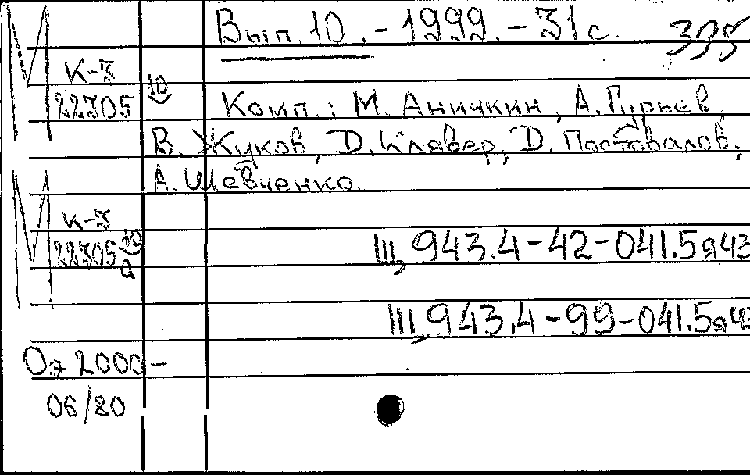 Вып. 10. - 1999. - 31 с.
395
К-3
22305 10
Комп.: М. Аничкин, А. Гурьев,
В. Жуков, Д. Клавер, Д. Постовалов,
А. Шевченко.
К-3
22305 10
а
Щ 943.4-42-041.5я43
Щ 943.4-99-041.5я43
Оэ 2000-
06/80